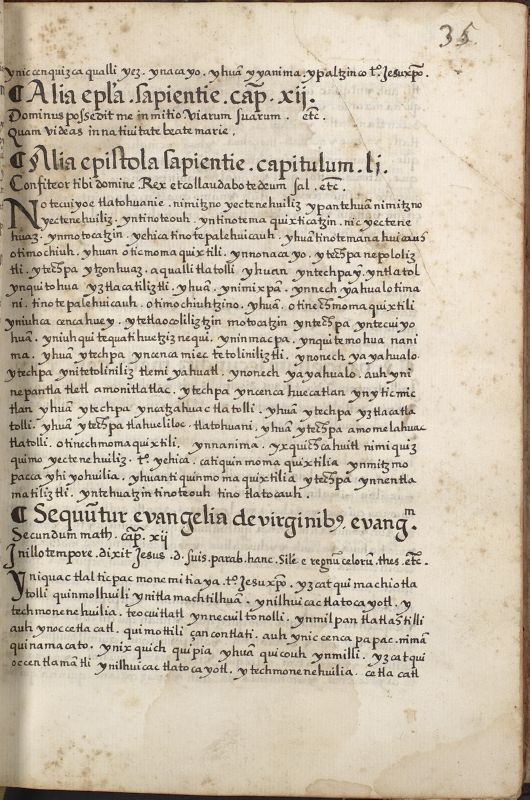 35
ynic cenquizca qualli yez. ynacayo. yhuā yyanima. ypaltzinco tº. Jesuxpō.
¶ Alia epl'a. sapientie. cap̄. xij.
Dominus possedit me in initio viarum suarum. etc̄.
Quam videas in natiuitate beate marie.
¶ Alia epistola sapientie. capitulum. lj.
Confiteor tibi domine. Rex et collaudabo te deum sal. etc̄.
Notecuiyoe tlatohuanie. nimitzno yectenehuiliz ypantehuā nimitzno
yectenehuiliz. yntinoteouh. yntinotema quixticatzin. nic yectene
huaz. ynmotocatzin. yehica tinotepalehuicauh. yhuā tinotemanahuicauh
otimochiuh. yhuan oticmoma quixtili. ynnonacayo. ytech̄pa nepololiz
tli. ytech̄pa ytzonhuaz. aqualli tlatolli. yhuan yntechpay. yntlatol
ynquitohua yztlacatiliztli. yhuā. ynimixpā. ynnech yahualotima
ni. tinotepalehuicauh. otimochiuhtzino. yhuā. otinech̄momaquixtili
yniuhca cenca huey. ytetlaocoliliztzin motocatzin yntech̄pa yntecuiyo
huā. yniuhqui tequatihuetziznequi. yninmacpa. ynquitemohua nani
ma. yhuā ytechpa yncenca miec tetoliniliztli. ynonech yayahualo.
ytechpa ynitetoliniliz tlemiyahuatl. ynonech yayahualo. auh yni
nepantla tletl amonitlatlac. ytechpa yncenca huecatlan ynyticmic
tlan yhuā ytechpa yncatzahuac tlatolli. yhuā ytechpa yztlacatla
tolli. yhuā ytech̄pa tlahueliloc. tlatohuani. yhuā ytech̄pa amomelahuac
tlatolli. otinechmomaquixtili. ynnanima. yxquich̄cahuitl nimiquiz
quimo yectenehuiliz. tº. yehica. catiquinmoma quixtilia ynmitzmo
pacca yhiyohuilia. yhuantiquinmoma quixtilia ytech̄pa ynnentla
matiliztli. yntehuatzin tinoteouh tinotlatocauh.
¶ Sequūtur evangelia de virginibꝰ. evangᵐ.
Secundum math. cap̄. xij
In illo tempore. dixit Jesus. d. suis. parab. hanc. Sile e regnū celorū. thes. etc̄.
Yniquac tlalticpac monemitiaya. tº. Jesuxpō. yzcatqui machiotla
tolli quinmolhuili ynitlamachtilhuā. ynilhuicac tlatocayotl. y
techmonenehuilia. teocuitlatl ynnecuiltonolli. ynmilpan tlatlach̄tilli
auh ynoc cetlacatl. quimottili çan contlati. auh ynic cenca papac. nimā
quinamacato. ynixquich quipia yhuā quicouh ynmilli. yzcatqui
occentlamātli ynilhuicac tlatocayotl. ytechmonenehuilia. cetlacatl